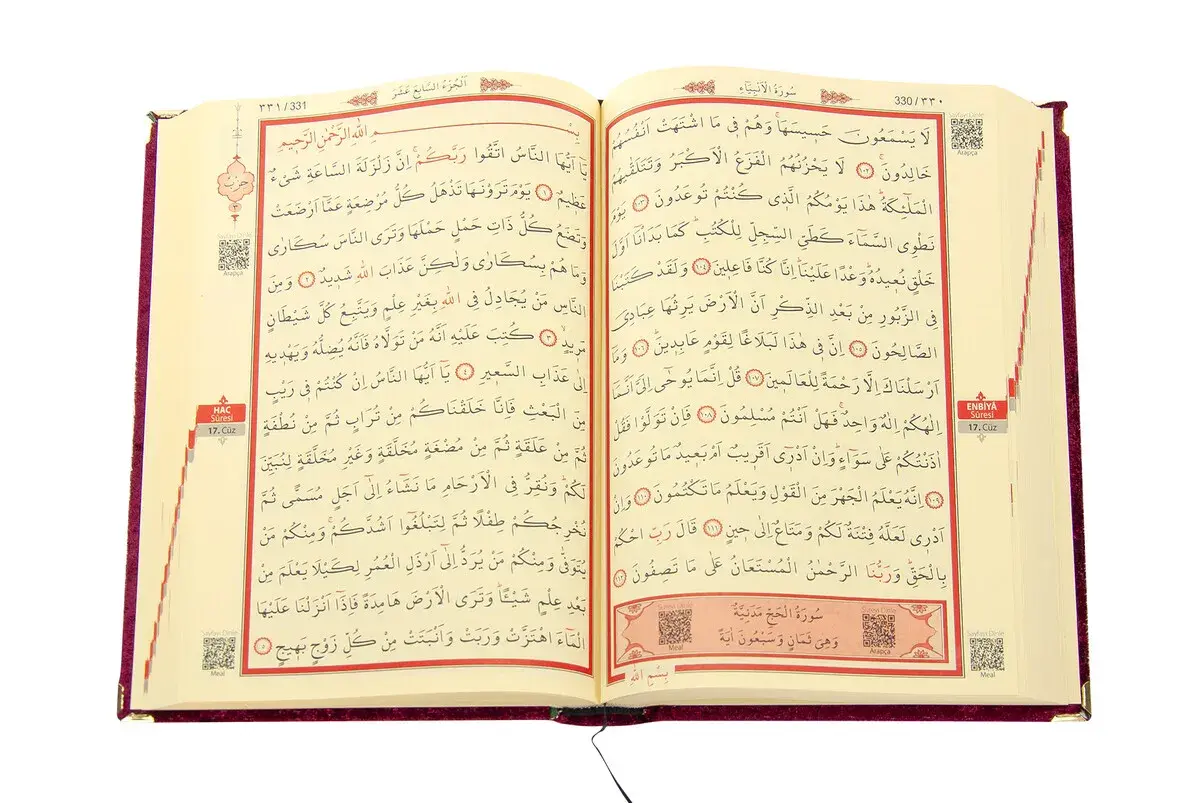 330/٣٣٠
سُورَةُ الْاَنْبِيَاءِ
لَا يَسْمَعُونَ حَسِيسَهَاۚ وَهُمْ ف۪ي مَا اشْتَهَتْ اَنْفُسُهُمْ
خَالِدُونَۚ ﴿١٠٢﴾ لَا يَحْزُنُهُمُ الْفَزَعُ الْاَكْبَرُ وَتَتَلَقّٰيهُمُ
الْمَلٰٓئِكَةُۜ هٰذَا يَوْمُكُمُ الَّذ۪ي كُنْتُمْ تُوعَدُونَ ﴿١٠٣﴾ يَوْمَ
نَطْوِي السَّمَٓاءَ كَطَيِّ السِّجِلِّ لِلْكُتُبِۜ كَمَا بَدَأْنَٓا اَوَّلَ
خَلْقٍ نُع۪يدُهُۜ وَعْدًا عَلَيْنَاۜ اِنَّا كُنَّا فَاعِل۪ينَ ﴿١٠٤﴾ وَلَقَدْ كَتَبْنَا
فِي الزَّبُورِ مِنْ بَعْدِ الذِّكْرِ اَنَّ الْاَرْضَ يَرِثُهَا عِبَادِيَ
الصَّالِحُونَ ﴿١٠٥﴾ اِنَّ ف۪ي هٰذَا لَبَلَاغًا لِقَوْمٍ عَابِد۪ينَۜ ﴿١٠٦﴾ وَمَٓا
اَرْسَلْنَاكَ اِلَّا رَحْمَةً لِلْعَالَم۪ينَ ﴿١٠٧﴾ قُلْ اِنَّمَا يُوحٰٓى اِلَيَّ اَنَّمَٓا
اِلٰهُكُمْ اِلٰهٌ وَاحِدٌۚ فَهَلْ اَنْتُمْ مُسْلِمُونَ ﴿١٠٨﴾ فَاِنْ تَوَلَّوْا فَقُلْ
اٰذَنْتُكُمْ عَلٰى سَوَٓاءٍۜ وَاِنْ اَدْر۪ٓي اَقَر۪يبٌ اَمْ بَع۪يدٌ مَا تُوعَدُونَ
﴿١٠٩﴾ اِنَّهُ يَعْلَمُ الْجَهْرَ مِنَ الْقَوْلِ وَيَعْلَمُ مَا تَكْتُمُونَ ﴿١١٠﴾ وَاِنْ
اَدْر۪ي لَعَلَّهُ فِتْنَةٌ لَكُمْ وَمَتَاعٌ اِلٰى ح۪ينٍ ﴿١١١﴾ قَالَ رَبِّ احْكُمْ
بِالْحَقِّۜ وَرَبُّنَا الرَّحْمٰنُ الْمُسْتَعَانُ عَلٰى مَا تَصِفُونَ ﴿١١٢﴾
سُورَةُ الْحَجِّ مَدَنِيَّةٌ
وَهِيَ ثَمَانٍ وَسَبْعُونَ اٰيَةً
بِسْمِ اللّٰهِ
Sayfayı Dinle
Arapça
ENBİYÂ
Sûresi
17. Cüz
Sureyi Dinle
Arapça
Sureyi Dinle
Meal
Sayfayı Dinle
Meal
٣٣١/331
اَلْجُزْءُ السَّابِعَ عَشَرَ
بِسْمِ اللّٰهِ الرَّحْمٰنِ الرَّح۪يمِ
يَٓا اَيُّهَا النَّاسُ اتَّقُوا رَبَّكُمْۚ اِنَّ زَلْزَلَةَ السَّاعَةِ شَيْءٌ
عَظ۪يمٌ ﴿١﴾ يَوْمَ تَرَوْنَهَا تَذْهَلُ كُلُّ مُرْضِعَةٍ عَمَّٓا اَرْضَعَتْ
وَتَضَعُ كُلُّ ذَاتِ حَمْلٍ حَمْلَهَا وَتَرَى النَّاسَ سُكَارٰى
وَمَا هُمْ بِسُكَارٰى وَلٰكِنَّ عَذَابَ اللّٰهِ شَد۪يدٌ ﴿٢﴾ وَمِنَ
النَّاسِ مَنْ يُجَادِلُ فِي اللّٰهِ بِغَيْرِ عِلْمٍ وَيَتَّبِعُ كُلَّ شَيْطَانٍ
مَر۪يدٍۙ ﴿٣﴾ كُتِبَ عَلَيْهِ اَنَّهُ مَنْ تَوَلَّاهُ فَاَنَّهُ يُضِلُّهُ وَيَهْد۪يهِ
اِلٰى عَذَابِ السَّع۪يرِ ﴿٤﴾ يَٓا اَيُّهَا النَّاسُ اِنْ كُنْتُمْ ف۪ي رَيْبٍ
مِنَ الْبَعْثِ فَاِنَّا خَلَقْنَاكُمْ مِنْ تُرَابٍ ثُمَّ مِنْ نُطْفَةٍ
ثُمَّ مِنْ عَلَقَةٍ ثُمَّ مِنْ مُضْغَةٍ مُخَلَّقَةٍ وَغَيْرِ مُخَلَّقَةٍ لِنُبَيِّنَ
لَكُمْۜ وَنُقِرُّ فِي الْاَرْحَامِ مَا نَشَٓاءُ اِلٰٓى اَجَلٍ مُسَمًّى ثُمَّ
نُخْرِجُكُمْ طِفْلًا ثُمَّ لِتَبْلُغُٓوا اَشُدَّكُمْۚ وَمِنْكُمْ مَنْ
يُتَوَفّٰى وَمِنْكُمْ مَنْ يُرَدُّ اِلٰٓى اَرْذَلِ الْعُمُرِ لِكَيْلَا يَعْلَمَ مِنْ
بَعْدِ عِلْمٍ شَيْـًٔاۜ وَتَرَى الْاَرْضَ هَامِدَةً فَاِذَٓا اَنْزَلْنَا عَلَيْهَا
الْمَٓاءَ اهْتَزَّتْ وَرَبَتْ وَاَنْبَتَتْ مِنْ كُلِّ زَوْجٍ بَه۪يجٍ ﴿٥﴾
حِزْب
٣
Sayfayı Dinle
Arapça
HAC
Sûresi
17. Cüz
Sayfayı Dinle
Meal